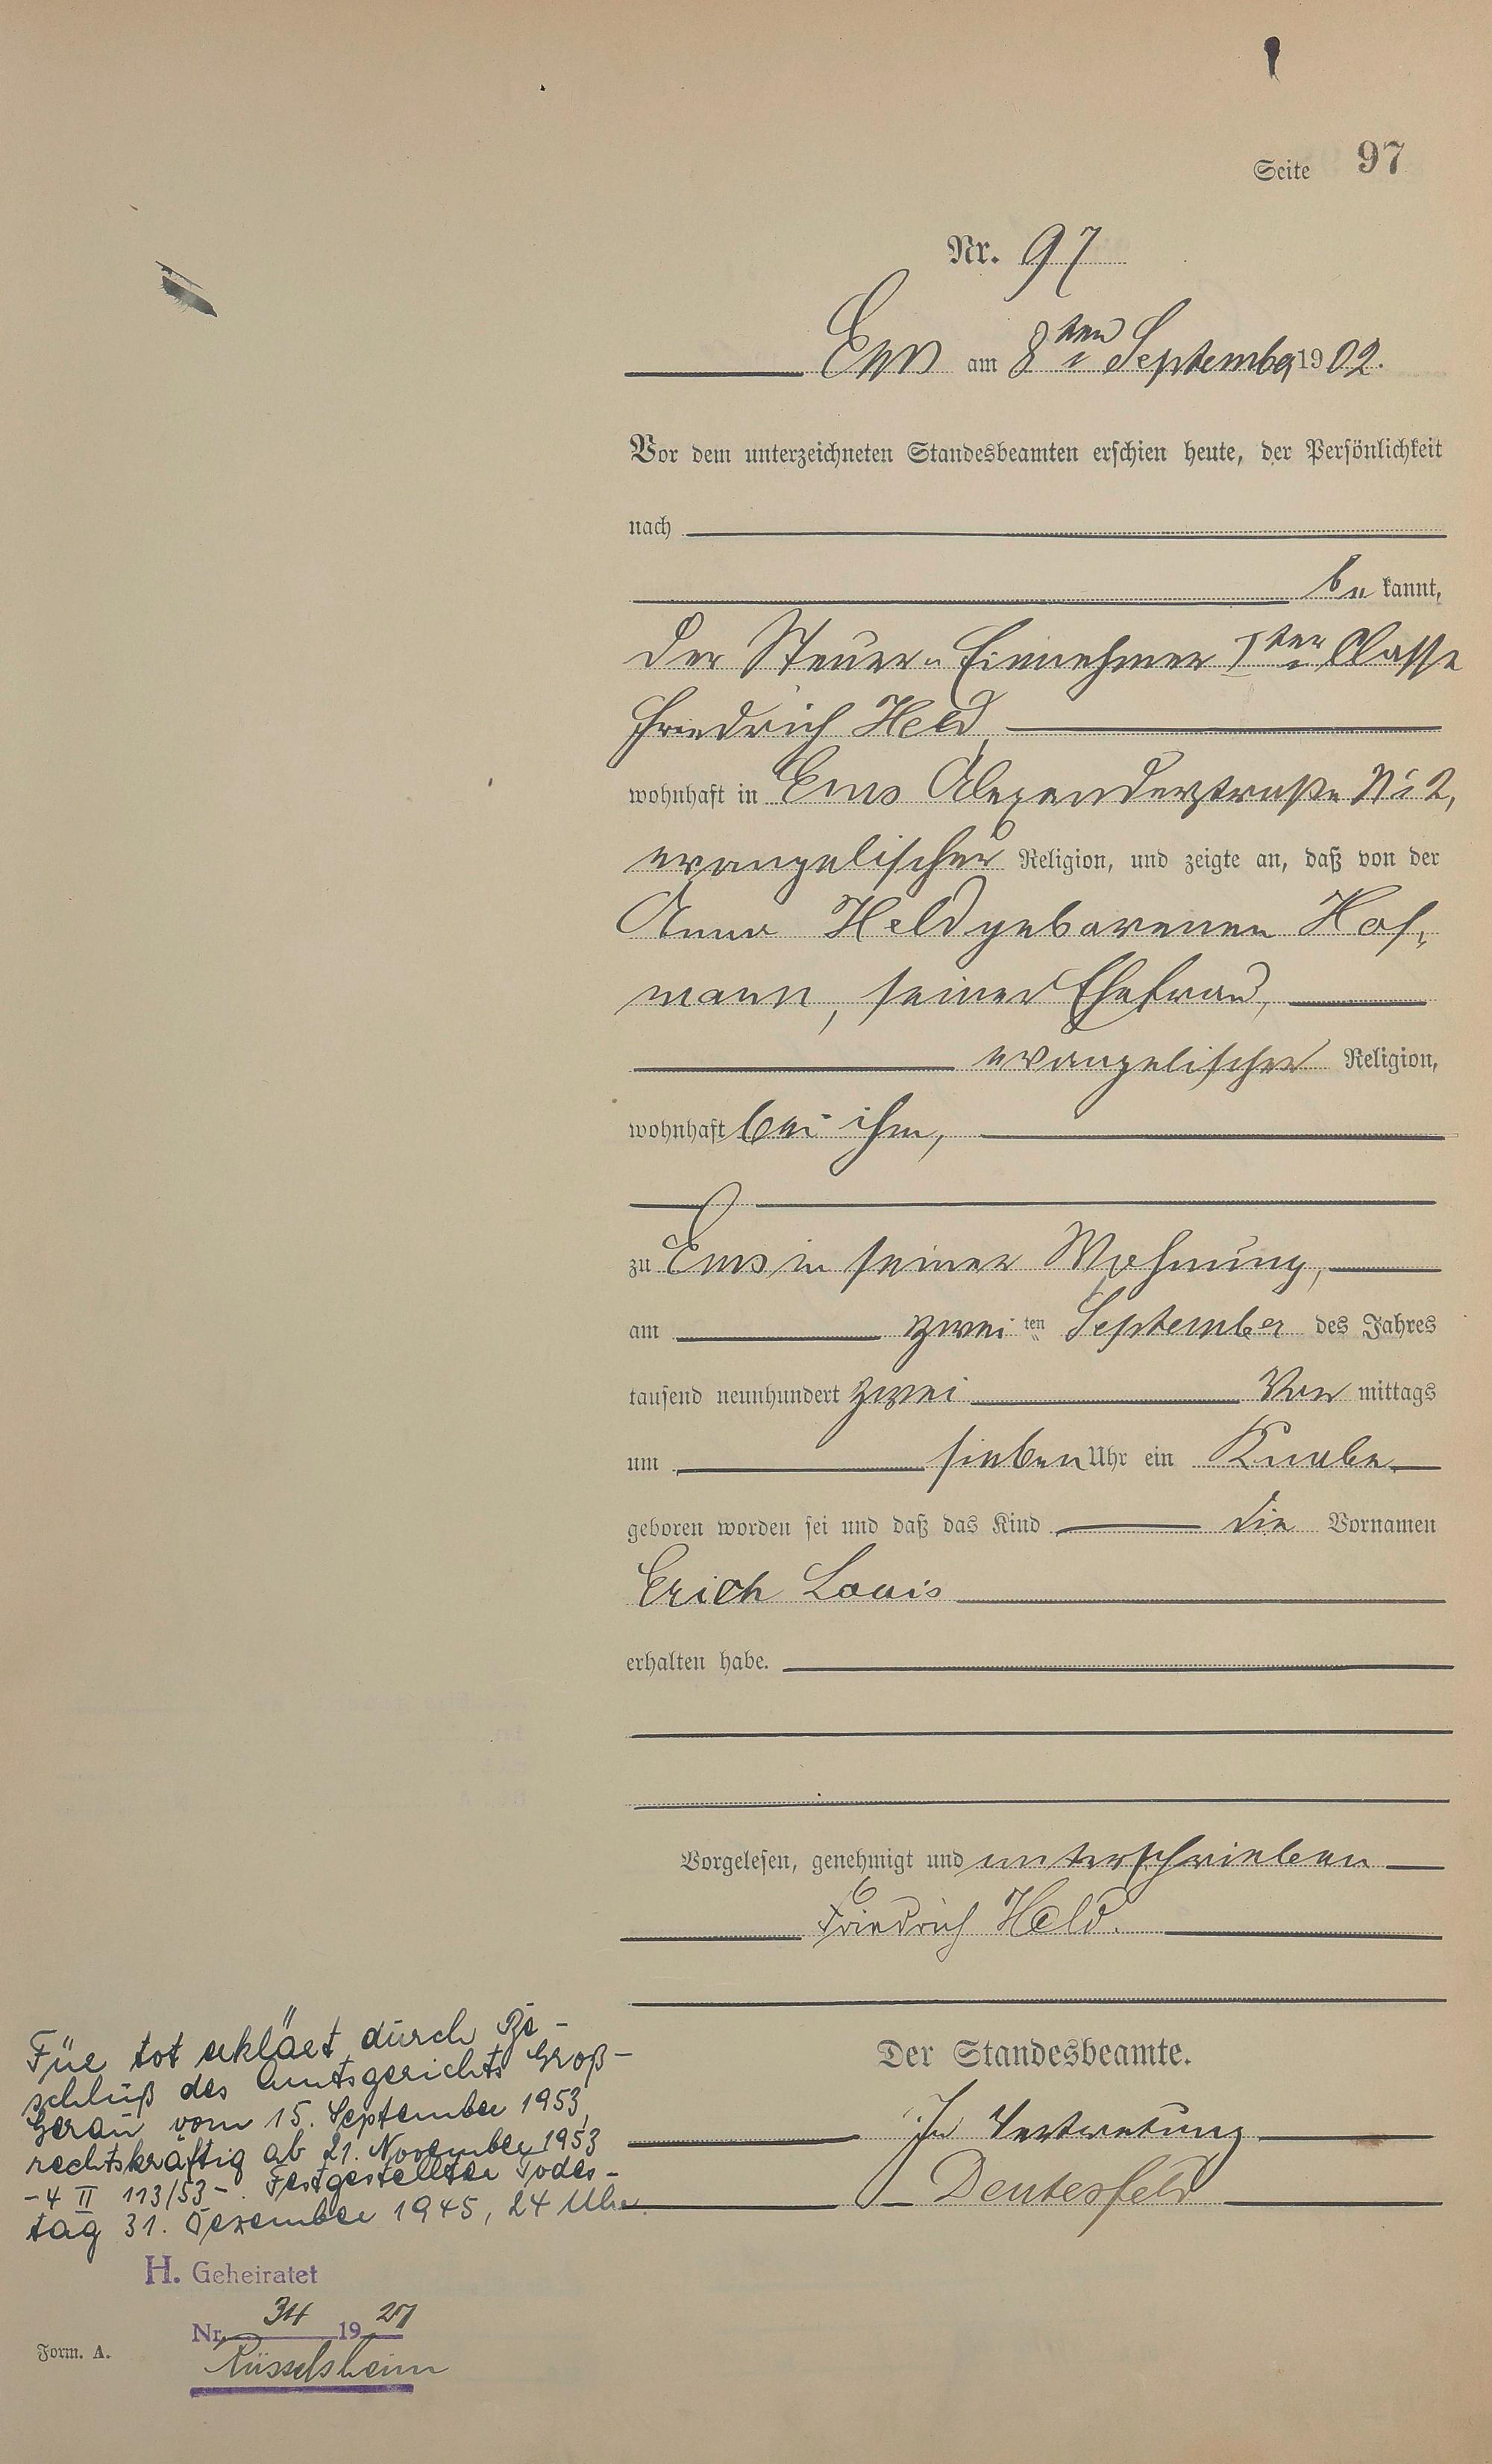 Seite 97
Nr. 97
Ems am 8ten September 1902.
Vor dem unterzeichneten Standesbeamten erschien heute, der Persönlichkeit
nach
be kannt,
der Steuer-Einnehmer Iter Classe
Friedrich Held,
wohnhaft in Ems Alexanderstraße No 2,
evangelischer Religion, und zeigte an, daß von der
Anna Held geborenen Hof-
mann, seiner Ehefrau,
evangelischer Religion,
wohnhaft bei ihm,
zu Ems in seiner Wohnung,
am zwei ten September des Jahres
tausend neunhundert zwei Vor mittags
um sieben Uhr ein Knabe
geboren worden sei und daß das Kind die Vornamen
Erich Louis
erhalten habe.
Vorgelesen, genehmigt und unterschrieben
Friedrich Held.
Der Standesbeamte.
In Vertretung
Deutesfeld
Für tot erklärt durch Be-
schluß des Amtsgerichts Groß-
Gerau vom 15. September 1953,
rechtskräftig ab 21. November 1953
- 4 II 113/53 -. Festgestellter Todes-
tag 31. Dezember 1945, 24 Uhr.
H. Geheiratet
Nr. 34 1927
Rüsselsheim
Form. A.